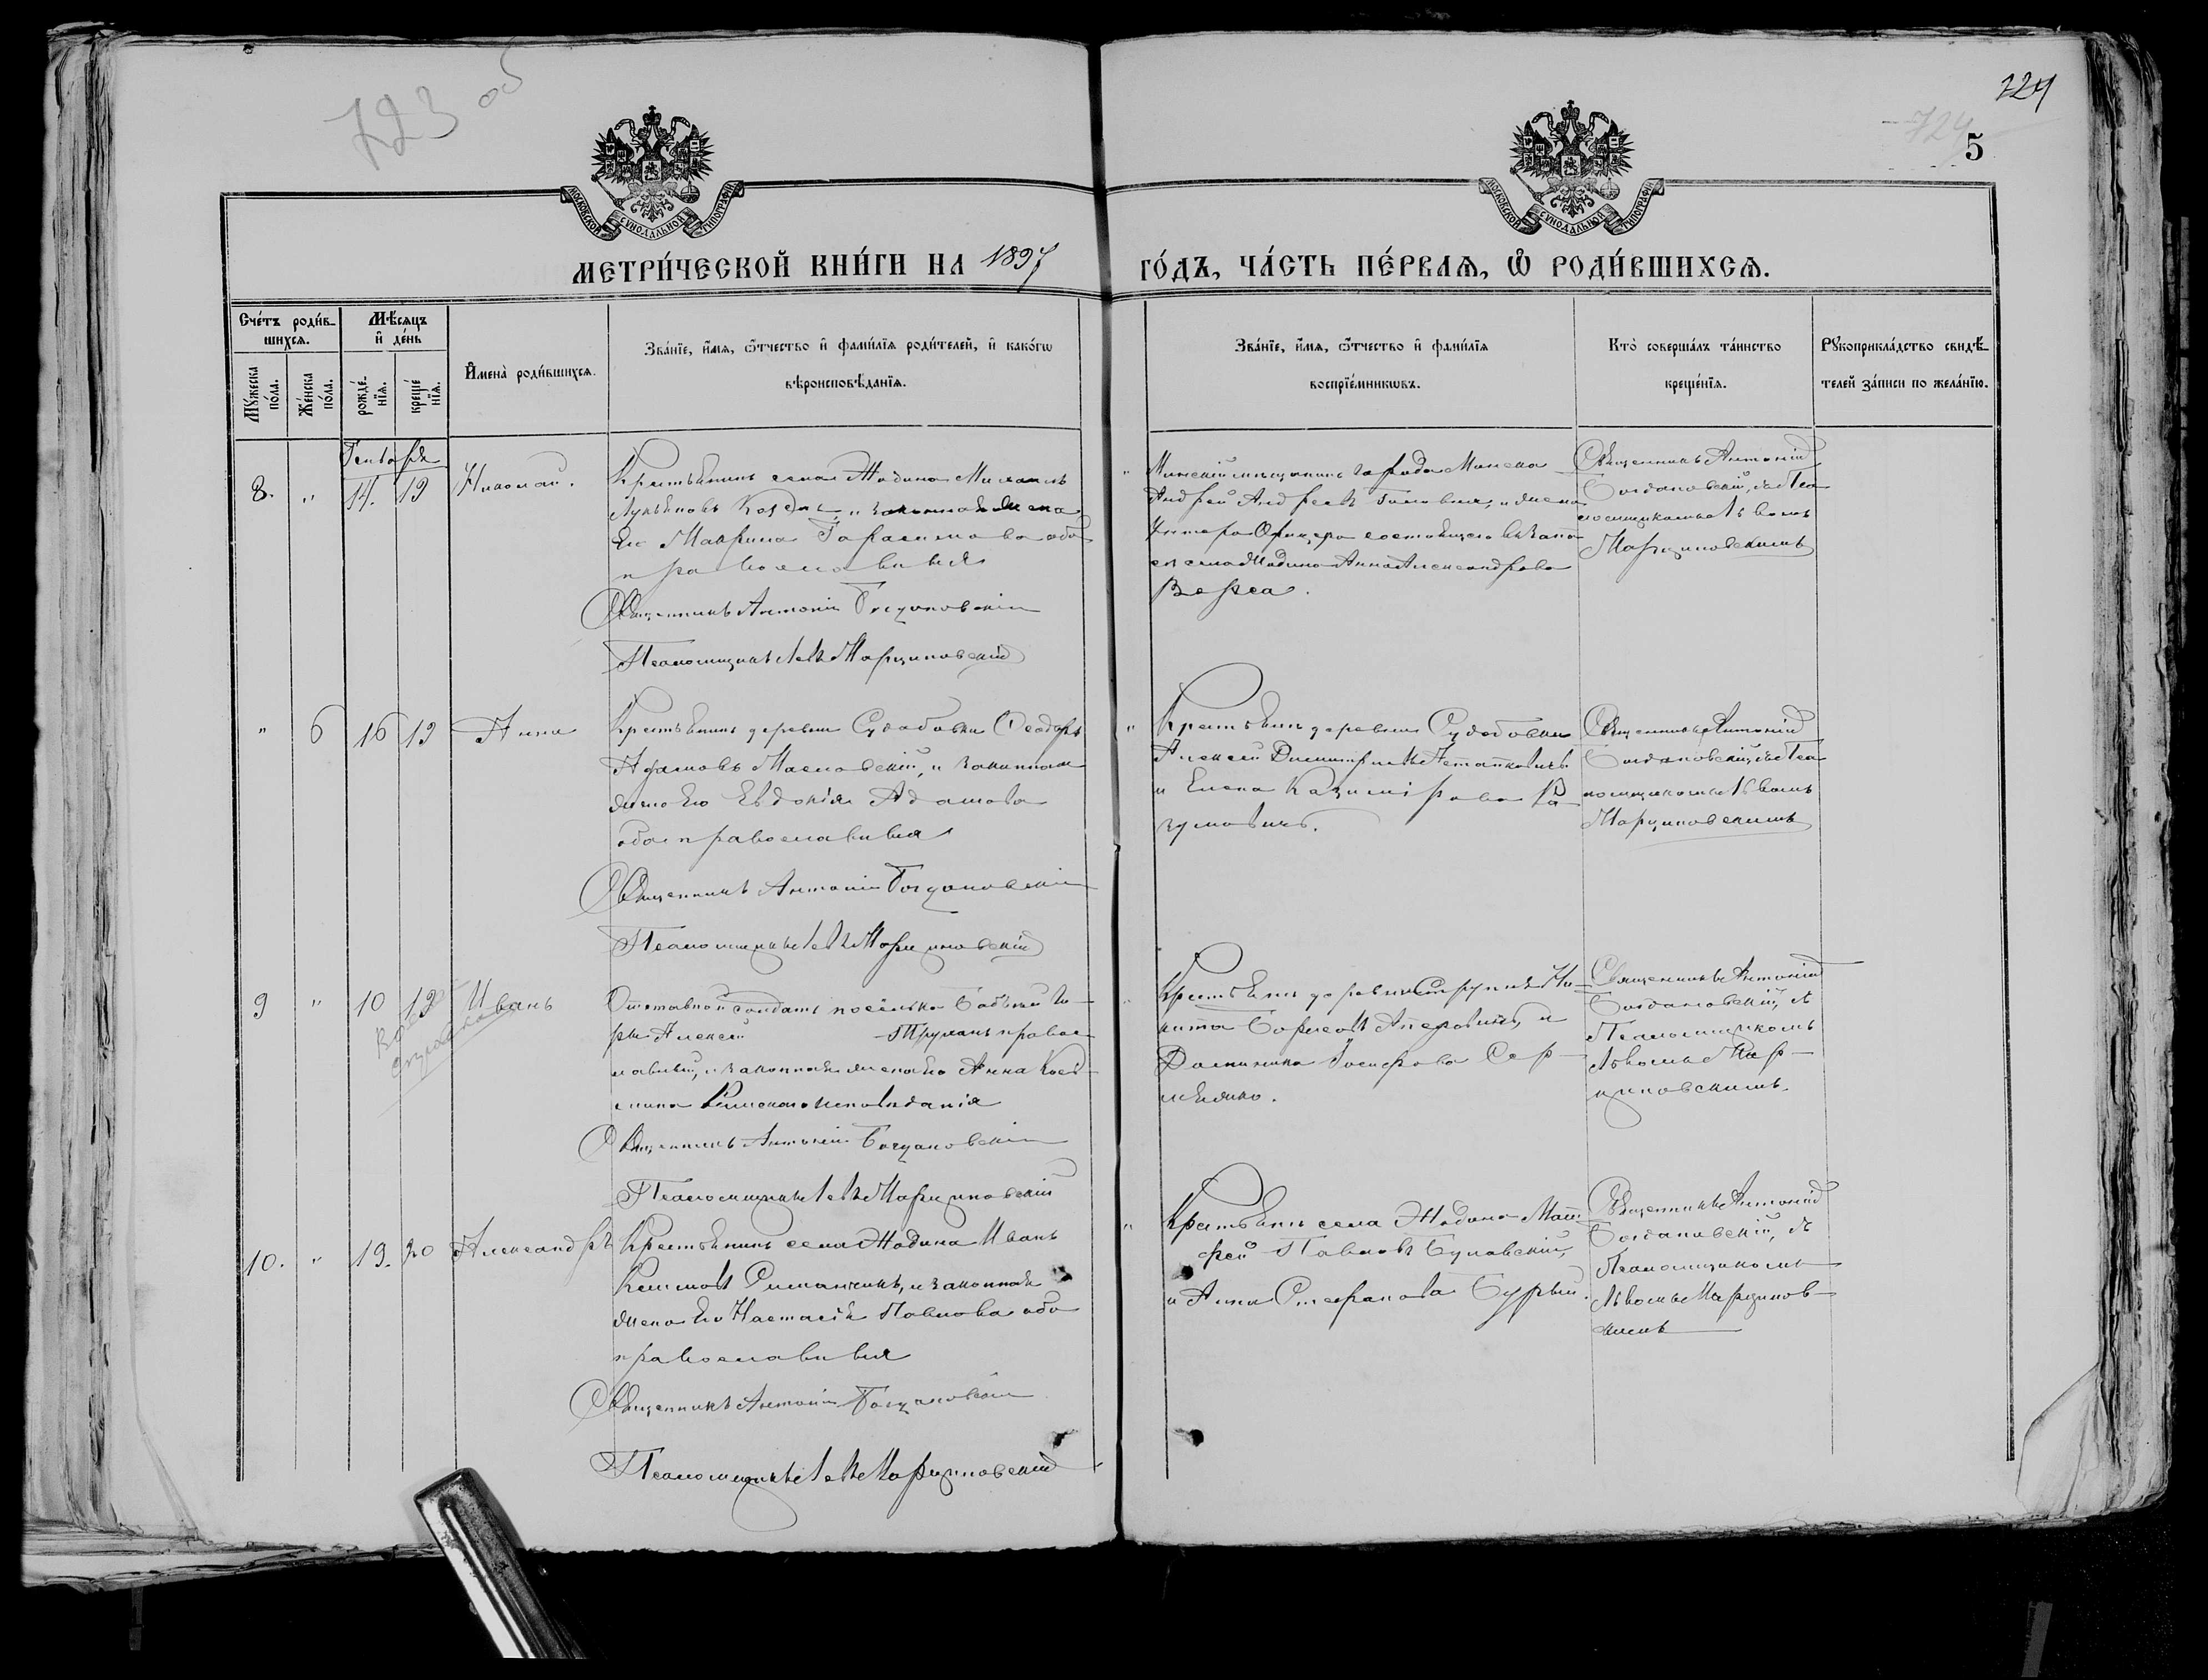 723 об
724
724
5
МОСКОВСКОЙ СУНОДАЛЬНОЙ ТИПОГРАФІИ
МОСКОВСКОЙ СУНОДАЛЬНОЙ ТИПОГРАФІИ
МЕТРИ́ЧЕСКОЙ КНИ́ГИ НА 1897
ГО́ДЪ, ЧА́СТЬ ПЕ́РВАЯ, Ѽ РОДИ́ВШИХСЯ.
Сче́тъ роди́в-
шихся.
Мѣ́сяцъ
и де́нь
Му́жеска по́ла.
Же́нска по́ла.
рожде́-
нїя.
креще́
нїя.
И҆мена̀ роди́вшихся.
Зва́нїе, и҆́мя, ѻ҆́тчество и҆ фами́лїя роди́телей, и҆ како́гѡ
вѣроисповѣ́данїя.
Зва́нїе, и҆́мя, ѻ҆́тчество и҆ фами́лїя
воспрїе́мникѡвъ.
Кто̀ соверша́лъ та́инство
креще́нїя.
Рꙋкоприкла́дство свидѣ́-
телей за́писи по жела́нїю.
Генваря
8. " 14. 19 Николай.
Крестьянинъ села Жодина
Лукьяновъ и законная жена
его Марина Герасимова оба
православные
Священникъ Антоній Богдановскій
Псаломщикъ Левъ Марциновскій
" города Минска
Андрей Андреевъ и жена
Унтеръ Офицера состоящаго въ запа-
сѣ села Жодина Анна Александрова
Священникъ Антоній
Богдановскій, съ Пса
ломщикомъ Львомъ
Марциновскимъ
" 6 16 19 Анна
Крестьянинъ деревни Судобовки Ѳеодоръ
Адамовъ Масловскій, и законная
жена его Евдокія Адамова
оба православные
Священникъ Антоній Богдановскій
Псаломщикъ Левъ Марциновскій
" Крестьян. деревни Судобовки
Алексей Димитріевъ
и Елена Казимірова Ра-
зумовичъ.
Священникъ Антоній
Богдановскій, съ Пса
ломщикомъ Львомъ
Марциновскимъ
9 " 10 19 Иванъ
Отставной солдатъ поселка
Алексей Труханъ правос-
лавный, и законная жена его Анна
Римскаго исповѣданія
Священникъ Антоній Богдановскій
Псаломщикъ Левъ Марциновскій
Крестьян. деревни Струпня Ни-
кита Борисовъ и
Доминика Іосифова
Священникъ Антоній
Богдановскій, съ
Псаломщикомъ
Львомъ Мар-
циновскимъ.
10. " 19. 20 Александръ
Крестьянинъ села Жодина Иванъ
и законная
жена его Настасія Павлова оба
православные
Священникъ Антоній Богдановскій
Псаломщикъ Левъ Марциновскій
" Крестьян. села Жодина Мат-
фей Павловъ Булавскій,
и Анна Стефанова
Священникъ Антоній
Богдановскій, съ
Псаломщикомъ
Львомъ Марцинов-
скимъ